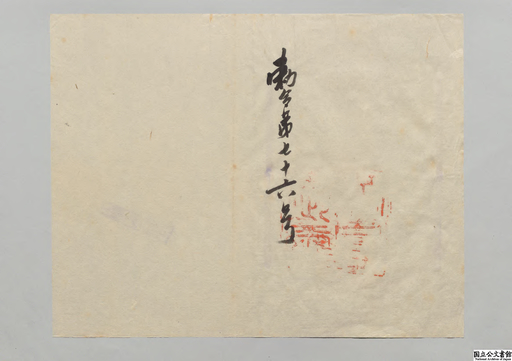 勅令第七十六号
国立公文書館
National Archives of Japan